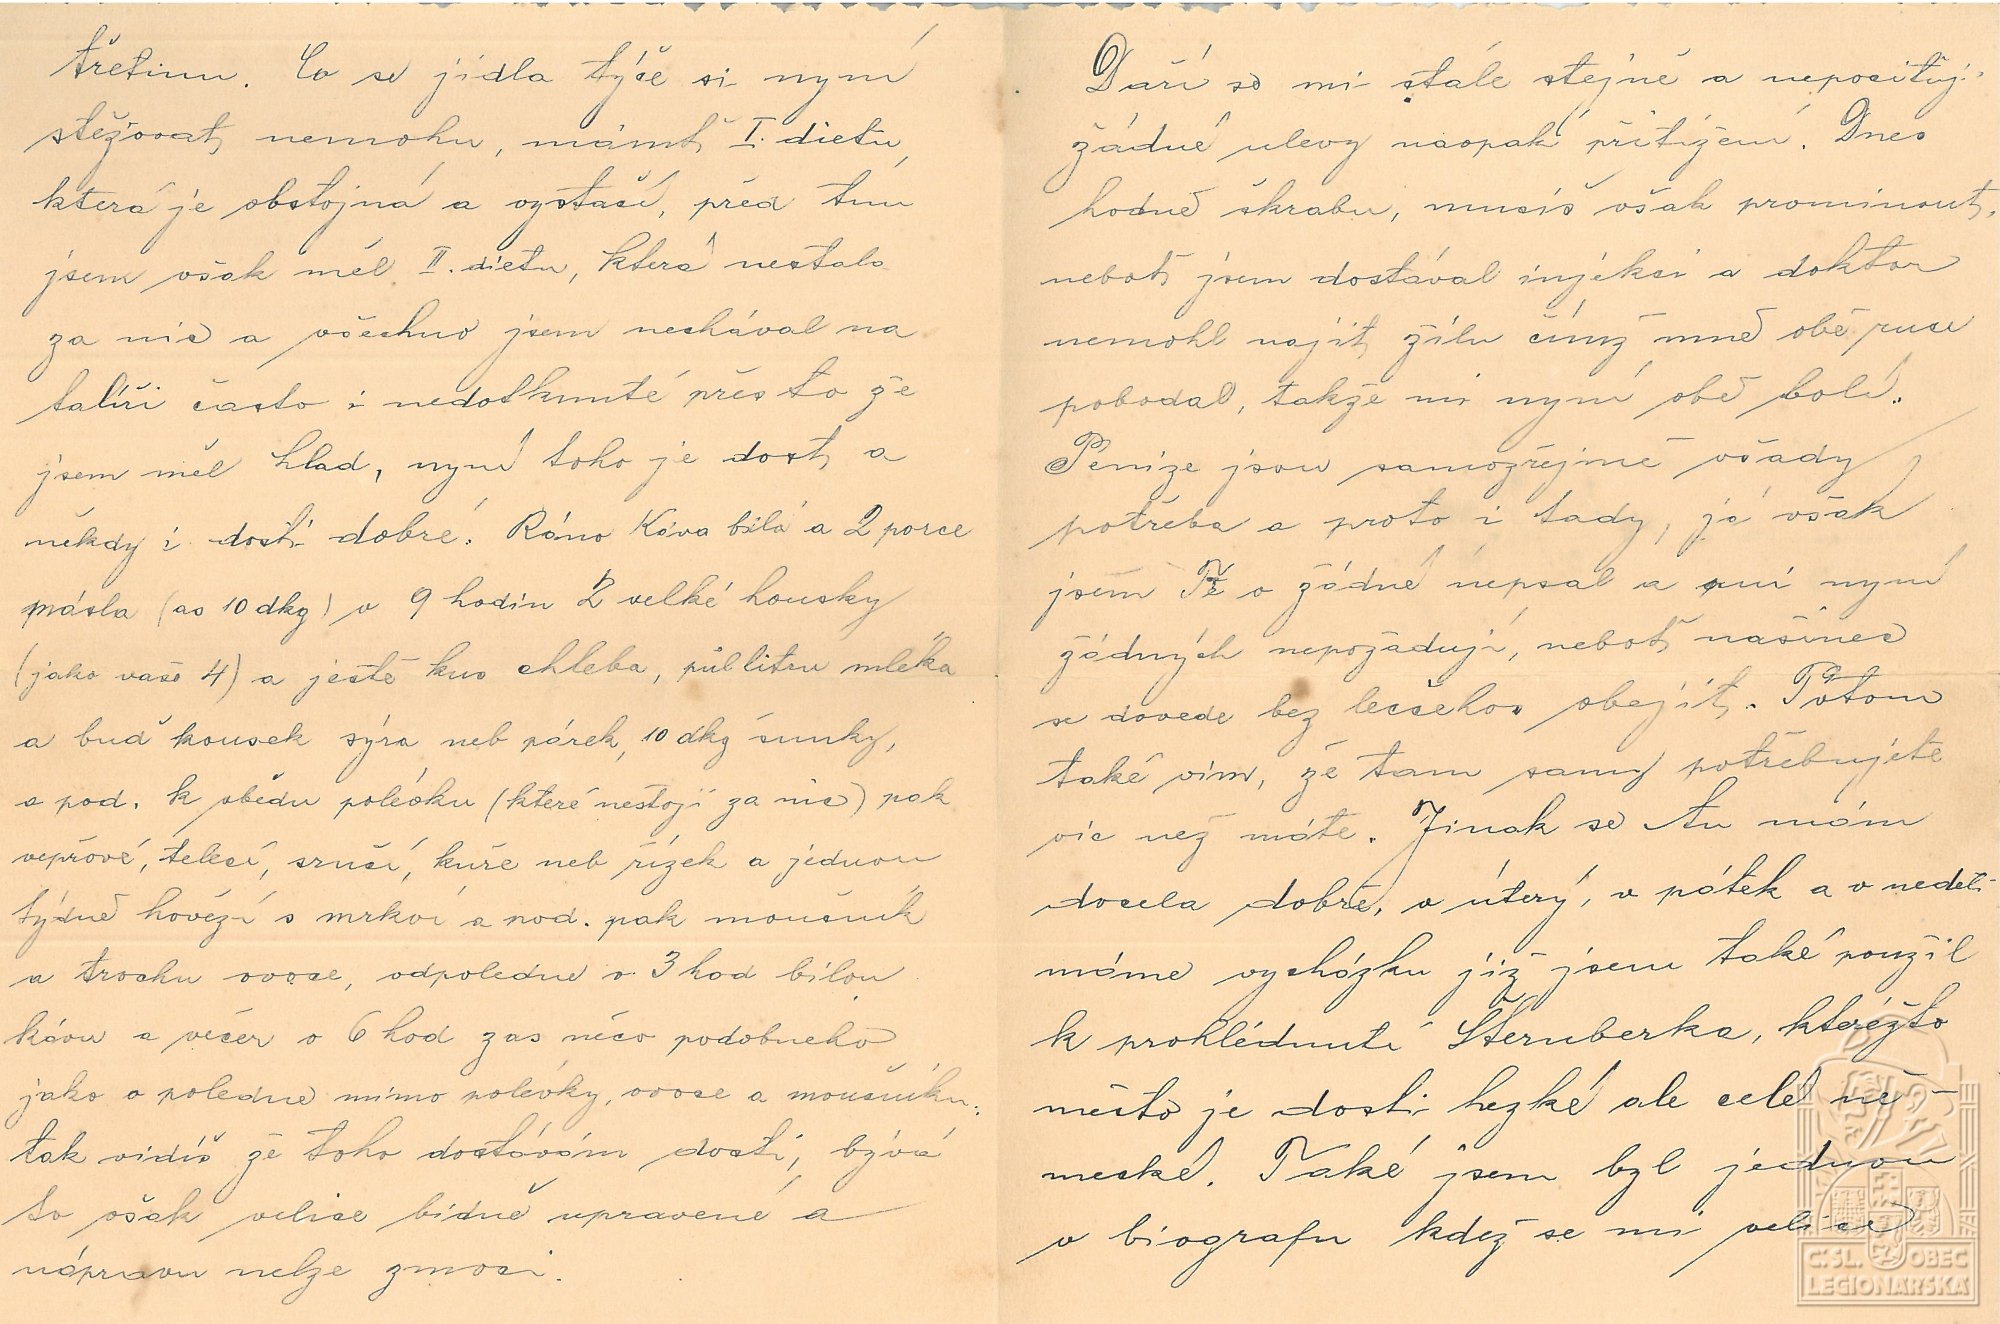 třetinu. Co se jídla týče si nyní
stěžovat nemohu, mámť I. dietu,
která je obstojná a vystačí, před tím
jsem však měl II. dietu, která nestála
za nic a všechno jsem nechával na
talíři často i nedotknuté přes to že
jsem měl hlad, nyní toho je dost a
někdy i dosti dobré. Ráno káva bílá a 2 porce
másla (as 10 dkg) v 9 hodin 2 velké housky
(jako vaše 4) a ještě kus chleba, půl litru mléka
a buď kousek sýra neb párek, 10 dkg šunky,
a pod. k obědu polévku (které nestojí za nic) pak
vepřové, telecí, srnčí, kuře neb řízek a jednou
týdně hovězí s mrkví a pod. pak moučník
a trochu ovoce, odpoledne v 3 hod bílou
kávu a večer v 6 hod zas něco podobného
jako v poledne mimo polévky, ovoce a moučníku.
tak vidíš že toho dostávám dosti, bývá
to však velice bídně upravené a
nápravu nelze zmoci.
Daří se mi stále stejně a nepociťuji
žádné úlevy naopak přitížení. Dnes
hodně škrabu, musíš však prominout,
neboť jsem dostával injekci a doktor
nemohl najít žílu čímž mně obě ruce
pobodal, takže mi nyní obě bolí.
Peníze jsou samozřejmě všady
potřeba a proto i tady, já však
jsem Tě o žádné nepsal a ani nyní
žádných nepožaduji, neboť našinec
se dovede bez lecčehos obejít. Potom
také vím, že tam samy potřebujete
víc než máte. Jinak se tu mám
docela dobře, v úterý, v pátek a v neděli
máme vycházku již jsem také použil
k prohlédnutí Šternberka, kteréžto
město je dosti hezké ale celé ně-
mecké. Také jsem byl jednou
v biografu kdež se mi velice
ČSL. OBEC
LEGIONÁŘSKÁ